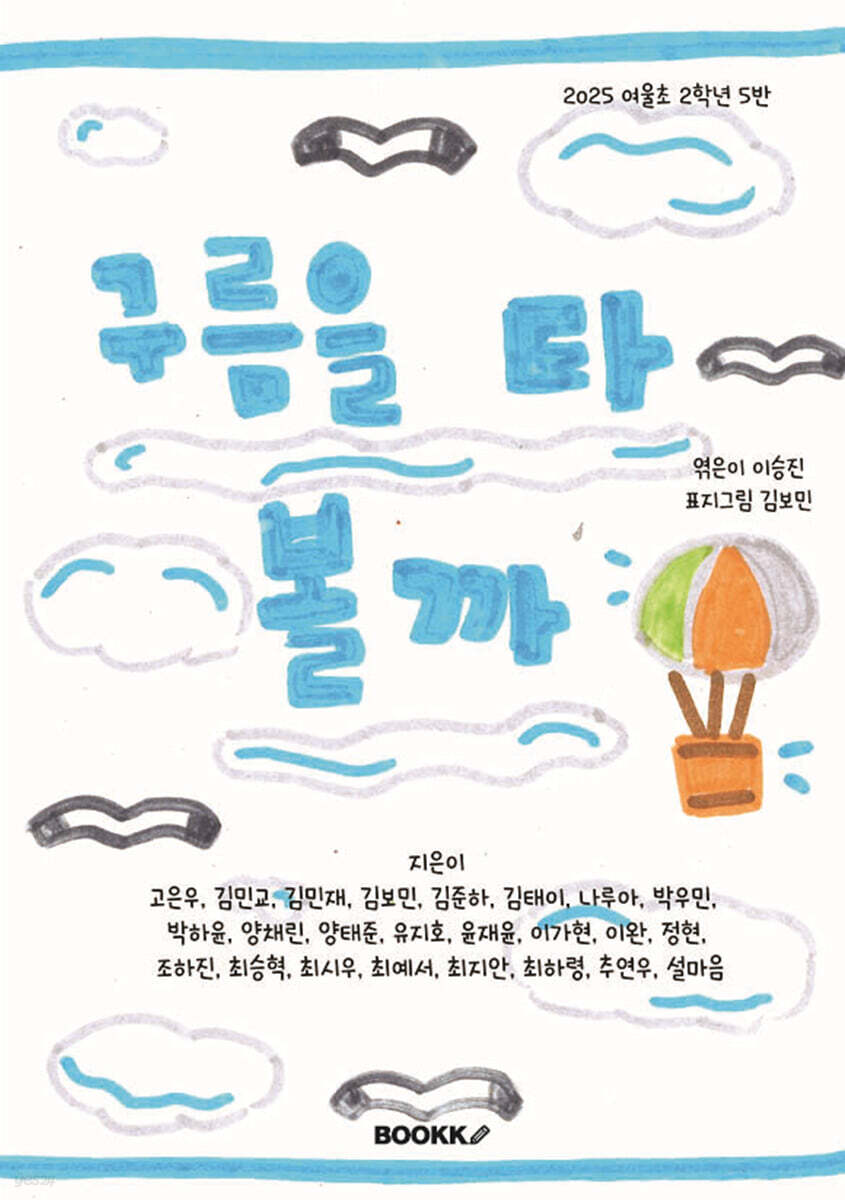 2025 여울초 2학년 5반
구름을 타
엮은이 이승진
표지그림 김보민
볼까
지은이
고은우, 김민교, 김민재, 김보민, 김준하, 김태이, 나루아, 박우민,
박하윤, 양채린, 양태준, 유지호, 윤재윤, 이가현, 이완, 정현,
조하진, 최승혁, 최시우, 최예서, 최지안, 최하령, 추연우, 설마음
BOOKK
yes24